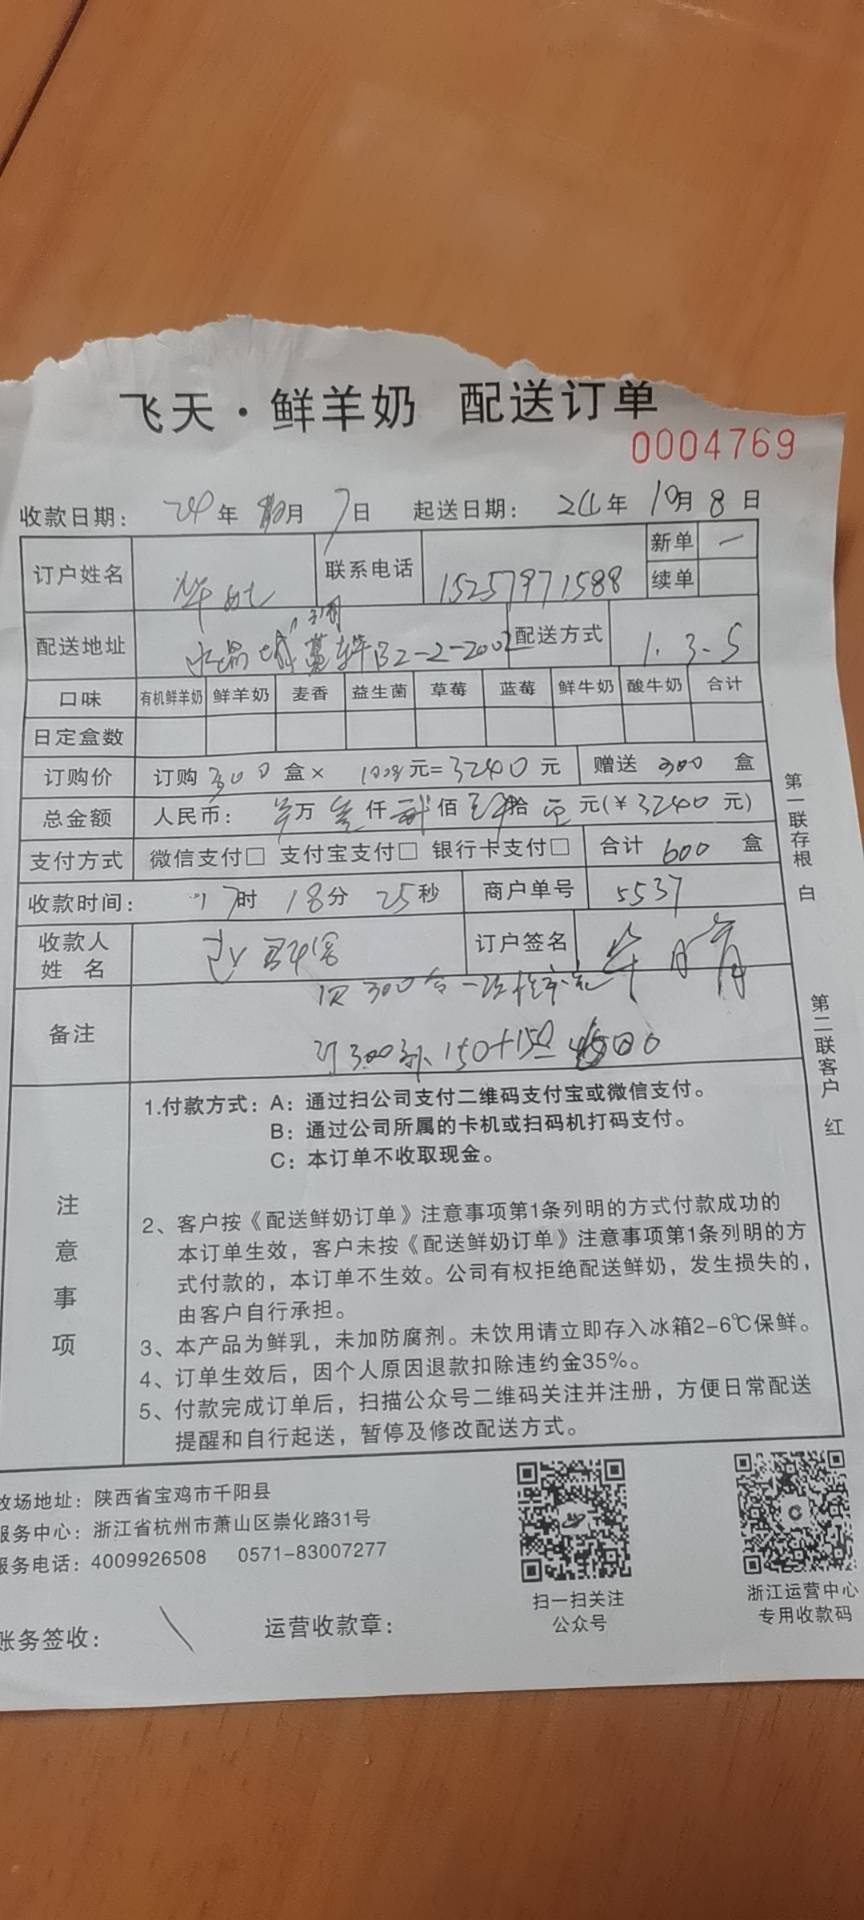 飞天·鲜羊奶 配送订单
0004769
收款日期: 24年10月7日 起送日期: 24年10月8日
订户姓名 联系电话 15257971588 新单 一
续单
配送地址 水晶城 B2-2-2002 配送方式 1.3.5
口味 有机鲜羊奶 鲜羊奶 麦香 益生菌 草莓 蓝莓 鲜牛奶 酸牛奶 合计
日定盒数
订购价 订购 300 盒× 元=3240元 赠送 300 盒
总金额 人民币: 万 仟 佰 拾 元(¥3240元)
支付方式 微信支付□ 支付宝支付□ 银行卡支付□ 合计 600 盒
收款时间: 17时 18分 25秒 商户单号 5537
收款人姓名 订户签名
备注 300 一次
订300 150+150
注意事项
1.付款方式: A: 通过扫公司支付二维码支付宝或微信支付。
B: 通过公司所属的卡机或扫码机打码支付。
C: 本订单不收取现金。
2、客户按《配送鲜奶订单》注意事项第1条列明的方式付款成功的
本订单生效，客户未按《配送鲜奶订单》注意事项第1条列明的方
式付款的，本订单不生效。公司有权拒绝配送鲜奶，发生损失的，
由客户自行承担。
3、本产品为鲜乳，未加防腐剂。未饮用请立即存入冰箱2-6℃保鲜。
4、订单生效后，因个人原因退款扣除违约金35%。
5、付款完成订单后，扫描公众号二维码关注并注册，方便日常配送
提醒和自行起送，暂停及修改配送方式。
第一联存根 白
第二联客户 红
牧场地址: 陕西省宝鸡市千阳县
服务中心: 浙江省杭州市萧山区崇化路31号
服务电话: 4009926508 0571-83007277
扫一扫关注
公众号
浙江运营中心
专用收款码
账务签收: 运营收款章: